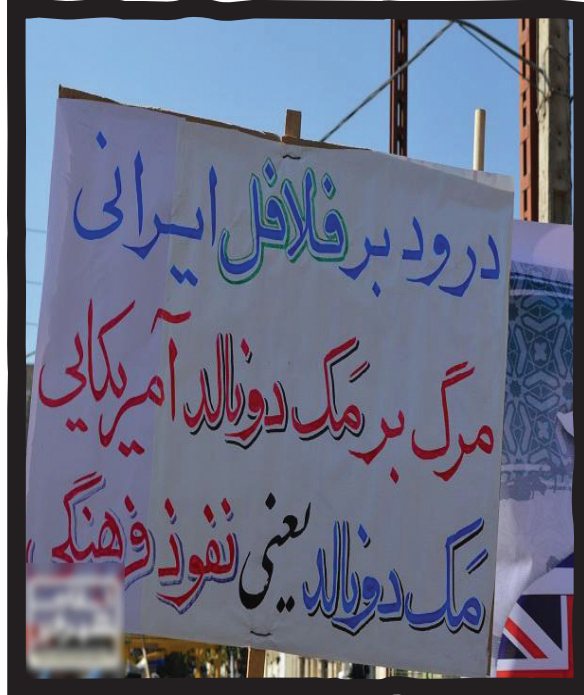 درود بر فلافل ایرانی
مرگ بر مَک دونالد آمریکایی
مَک دونالد یعنی نفوذ فرهنگی